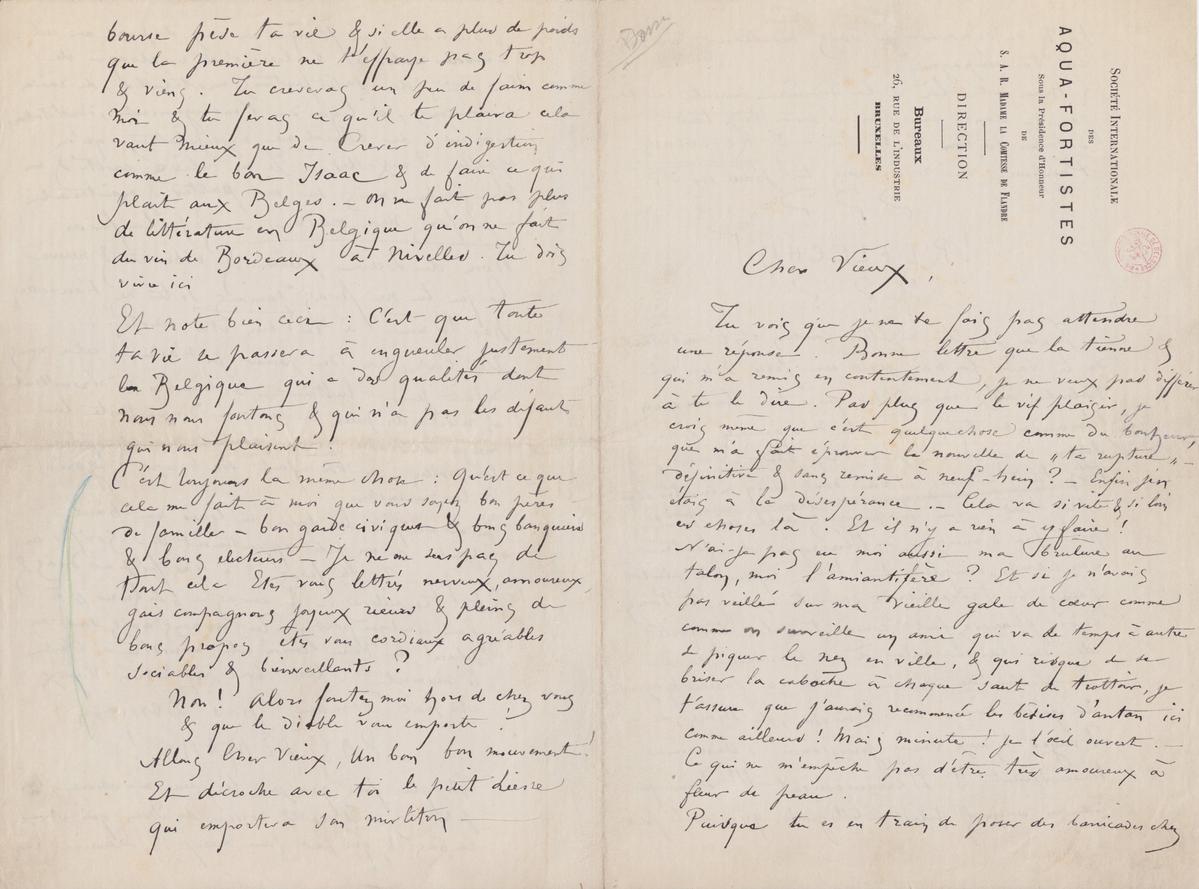 bourse pèse ta vie & si elle a plus de poids
que la première ne t'effraye pas trop
& viens. Tu creveras un peu de faim comme
moi & tu feras ce qu'il te plaira cela
vaut mieux que de Crever d'indigestion
comme le bon Isaac & de faire ce qui
plait aux Belges. – On ne fait pas plus
de littérature en Belgique qu'on ne fait
du vin de Bordeaux à Nivelles. Tu dois
vivre ici
Et note bien ceci : C'est que toute
ta vie se passera à engueuler justement
la Belgique qui a des qualités dont
nous nous foutons & qui n'a pas les défauts
qui nous plaisent.
C'est toujours la même chose : Qu'est ce que
cela me fait à moi que vous soyez bon pères
de famille – bon garde civiques & bons banquiers
& bons electeurs – Je ne me sers pas de
tout cela Etes vous lettrés nerveux, amoureux
gais compagnons joyeux rieurs & pleins de
bons propos etes vous cordiaux agréables
sociables & bienveillants ?
Non ! Alors foutez moi hors de chez vous
& que le diable vous emporte !
Allons Cher Vieux, Un bon bon mouvement !
Et décroche avec toi le petit Liesse
qui emportera son mirliton
Société Internationale
des
AQUA-FORTISTES
Sous la Présidence d'Honneur
de
S. A. R. Madame la Comtesse de Flandre
DIRECTION
Bureaux
26, RUE DE L'INDUSTRIE
BRUXELLES
Cher Vieux,
Tu vois que je ne te fais pas attendre
une réponse. Bonne lettre que la tienne &
qui m'a remis en contentement, je ne veux pas différer
à te le dire. Pas plus que le vif plaisir, je
crois même que c'est quelquechose comme du bonheur,
que m'a fait éprouver la nouvelle de „ta rupture" –
définitive & sans remise à neuf – hein ? – Enfin j'en
étais à la désespérance. – Cela va si vite & si loin
ces choses là. Et il n'y a rien à y faire !
N'ai-je pas eu moi aussi ma brûlure au
talon, moi l'amiantifère ? Et si je n'avais
pas veillé sur ma vieille gale de cœur comme
comme on surveille un ami qui va de temps à autre
se piquer le nez en ville, & qui risque de se
briser la caboche à chaque saut de trottoir, je
t'assure que j'aurais recommencé les bêtises d'antan ici
comme ailleurs ! Mais minute ! je l'oeil ouvert. –
Ce qui ne m'empêche pas d'être très amoureux à
fleur de peau.
Puisque tu es en train de poser des barricades chez